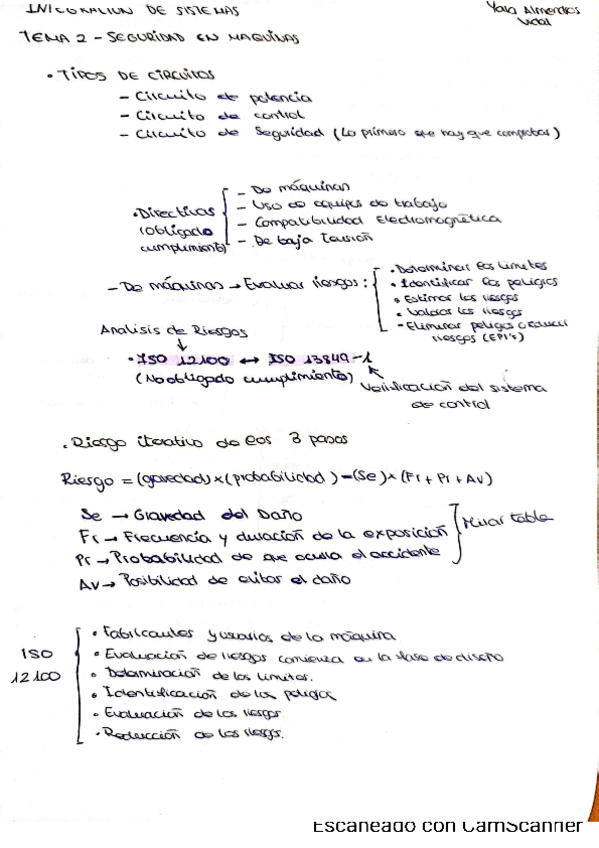 INTEGRACIÓN DE SISTEMAS
Yara Almendros
Vidal
TEMA 2 - SEGURIDAD EN MAQUINAS
• TIPOS DE CIRCUITOS
- Circuito de potencia
- Circuito de control
- Circuito de Seguridad (Lo primero que hay que comprobar)
• Directivas
(obligado
cumplimiento)
- De máquinas
- Uso de equipos de trabajo
- Compatibilidad Electromagnética
- De baja Tensión
- De máquinas → Evaluar riesgos:
• Determinar los límites
• Identificar los peligros
• Estimar los riesgos
• Valorar los riesgos
- Eliminar peligros o reducir
riesgos (EPI's)
Analisis de Riesgos
↓
• ISO 12100 ↔ ISO 13849-1
(No obligado cumplimiento)
Verificación del sistema
de control
• Riesgo iterativo de los 3 pasos
Riesgo = (gravedad) x (probabilidad) = (Se) x (Fr + Pr + Av)
Se → Gravedad del Daño
Fr → Frecuencia y duración de la exposición
Pr → Probabilidad de que ocurra el accidente
Mirar tabla
Av → Posibilidad de evitar el daño
ISO
12100
• Fabricantes y usuarios de la máquina
• Evaluación de riesgos comienza en la fase de diseño
• Determinación de los límites.
• Identificación de los peligros
• Evaluación de los riesgos.
• Reducción de los riesgos.
Escaneado con CamScanner